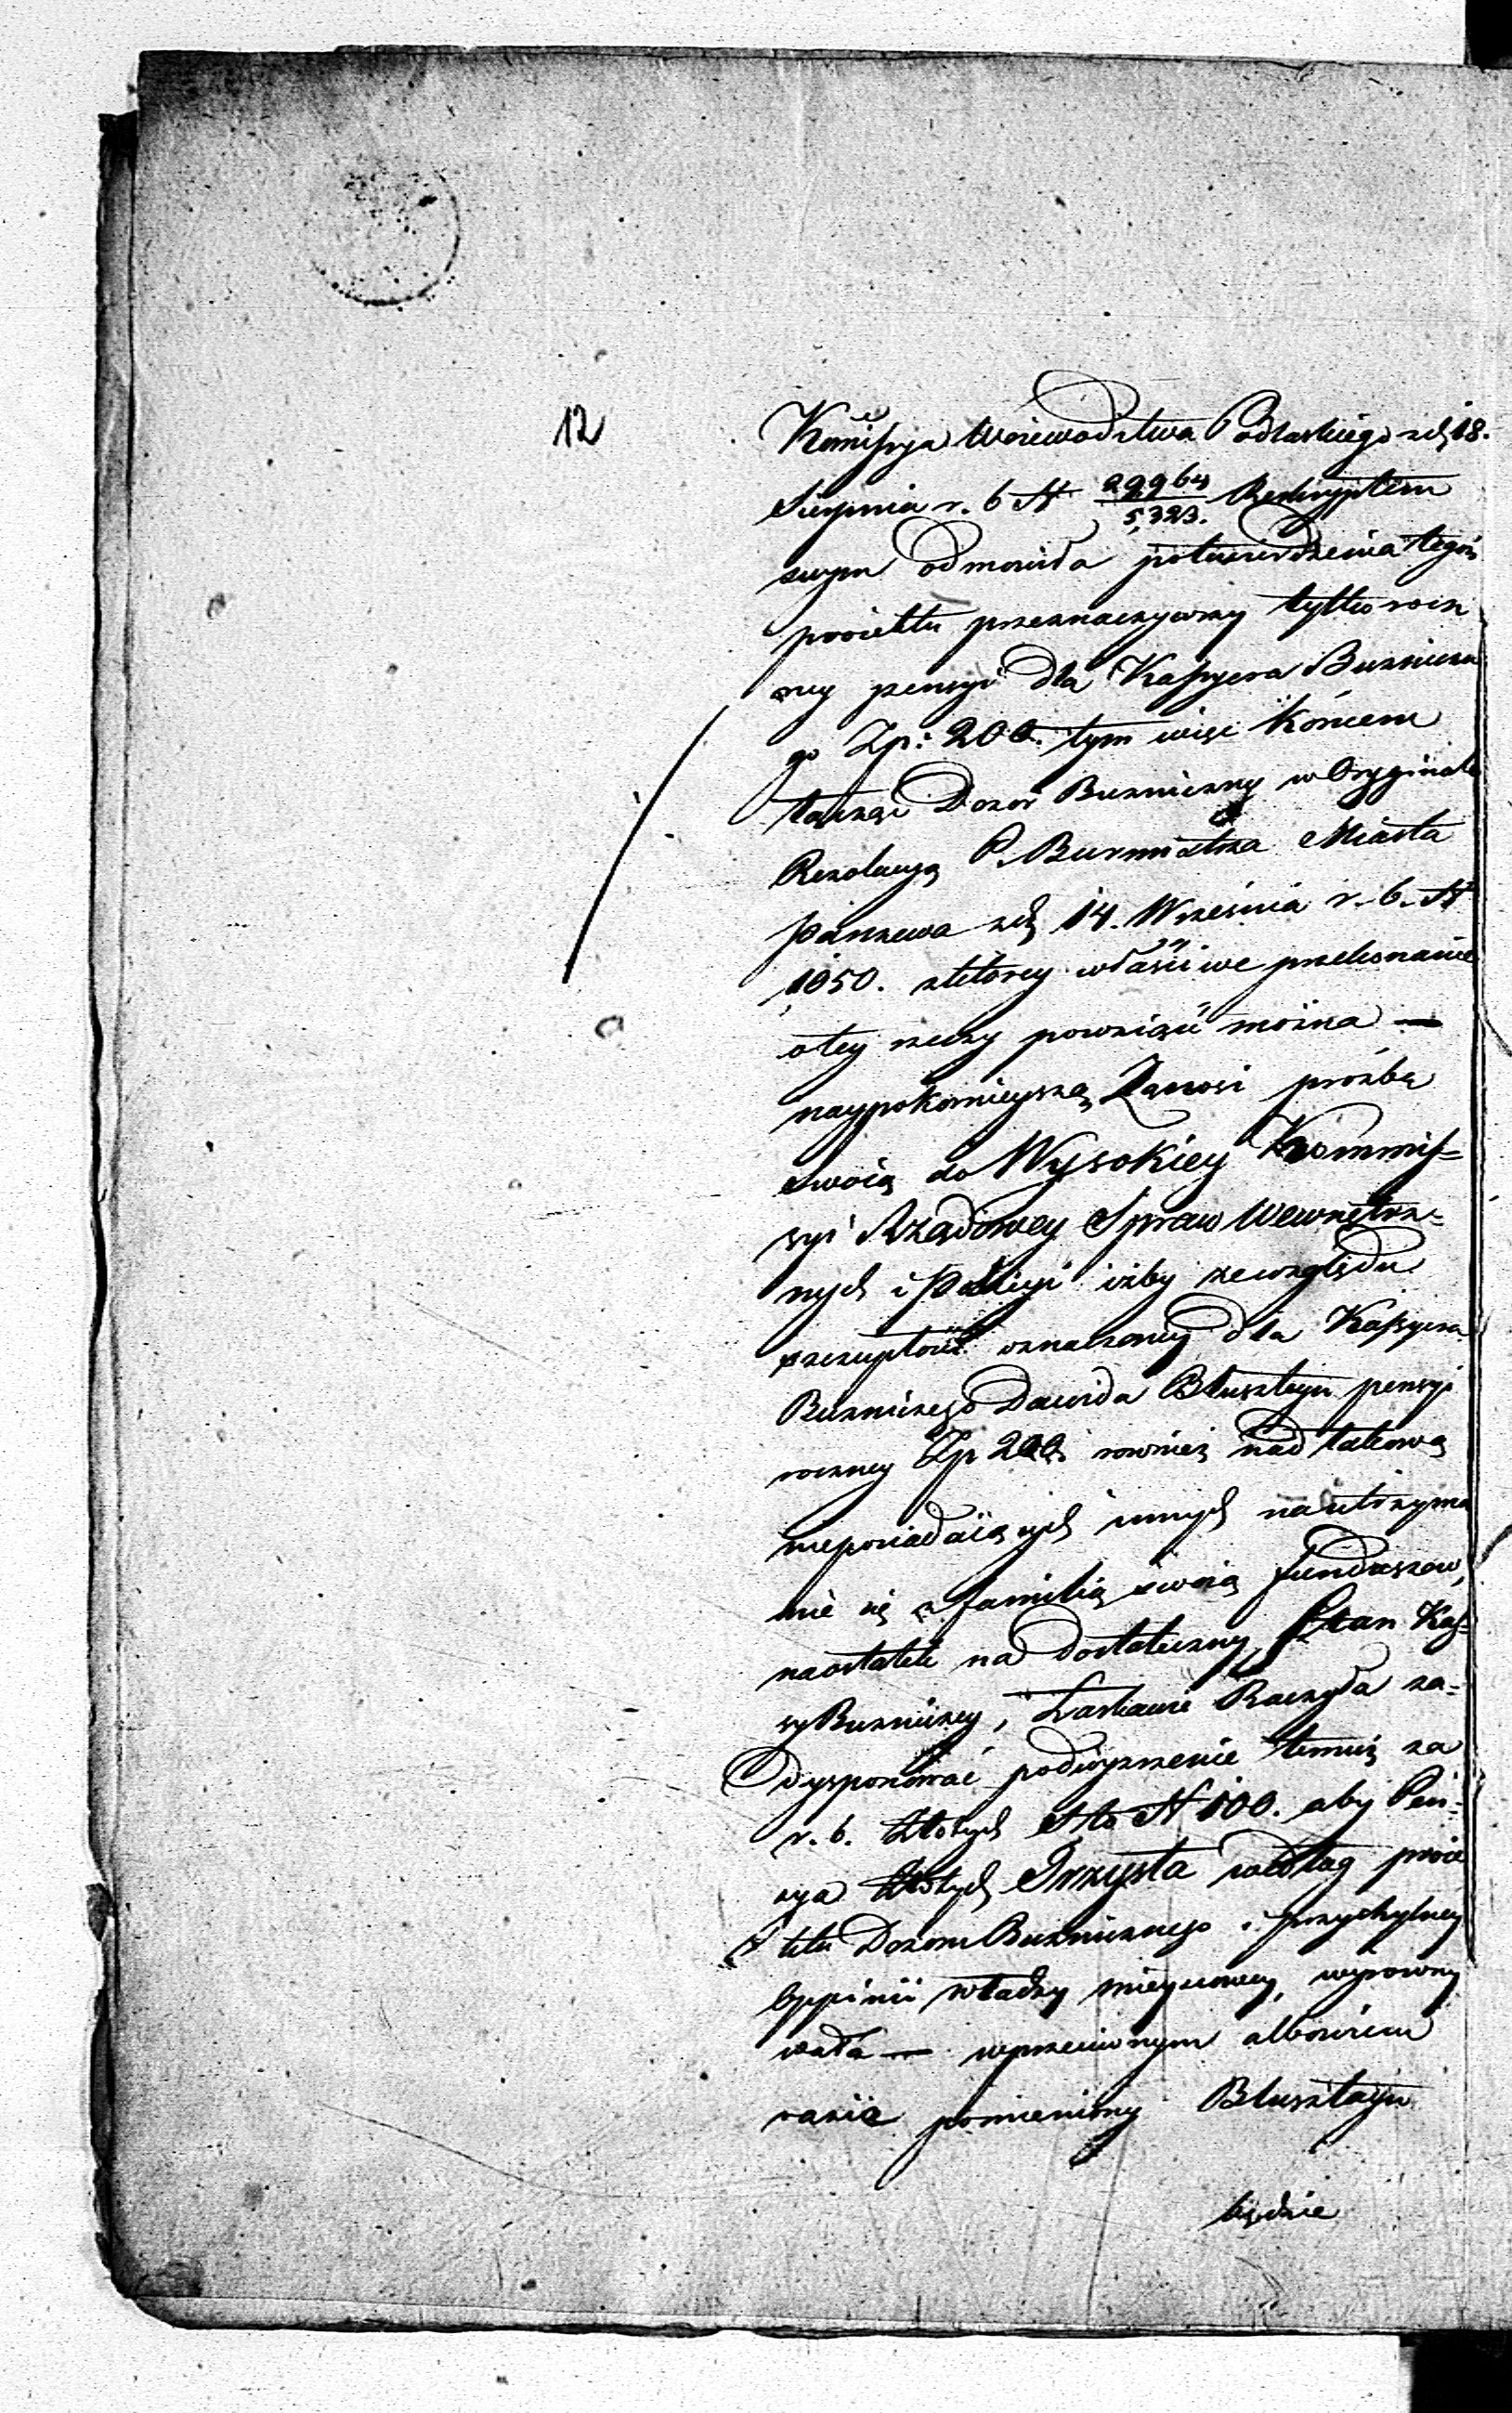 12
Kommissyja Woiewodztwa Podlaskiego z dn 18.
Sierpnia r. b. N 29964/5,323. Reskryptem
swym odmowiła potwierdzenia tegoż
proiektu przeznaczywszy tylko rocz
ney pensyi dla Kassyera Buzniczne
go Zp: 200. tym więc końcem
łącząc Dozor Buzniczny w Oryginale
Rezolucyą P. Burmistrza Miasta
Parczewa z d. 14. Września r. b. N
1050. z ktorey właściwe przekonanie
o tey rzeczy powziąść można —
naypokornieyszą Zanosi prozbę
swoią do Wysokiey Kommis=
syi Rządowey Spraw Wewnętrz=
nych i Policyi iżby ze względu
szczupłości oznaczoney dla Kassyera
Buzniczego Dawida Bluszteyn pensyi
roczney Zp 200. rownież nad takową
nieposiadaiących innych na utrzyma
nie się z familią swoią funduszow,
na ostatek na dostateczny Stan Kas=
sy Buzniczey, Łaskawie Raczyła za=
dysponować podwyższenie temuż za
r. b. Złotych Sto N 100. aby Pen=
sya Złotych Trzysta wedlug proie
ktu Dozoru Buznicznego i przychylney
Oppinii władzy mieyscowey, wyrowny
wała — w przeciwnym albowiem
razie pomieniony Blusztayn
będzie